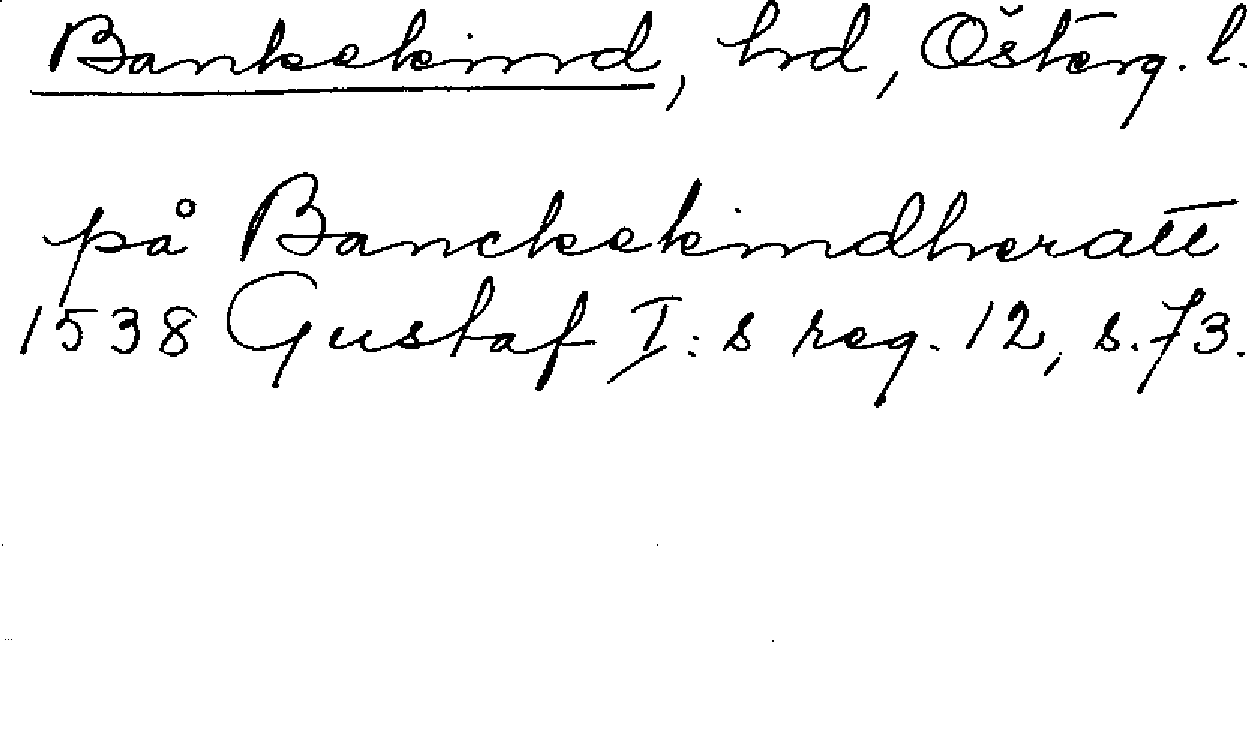 Bankekind, hd, Österg. l.
på Banckekindheratt
1538 Gustaf I:s reg. 12, s. 73.